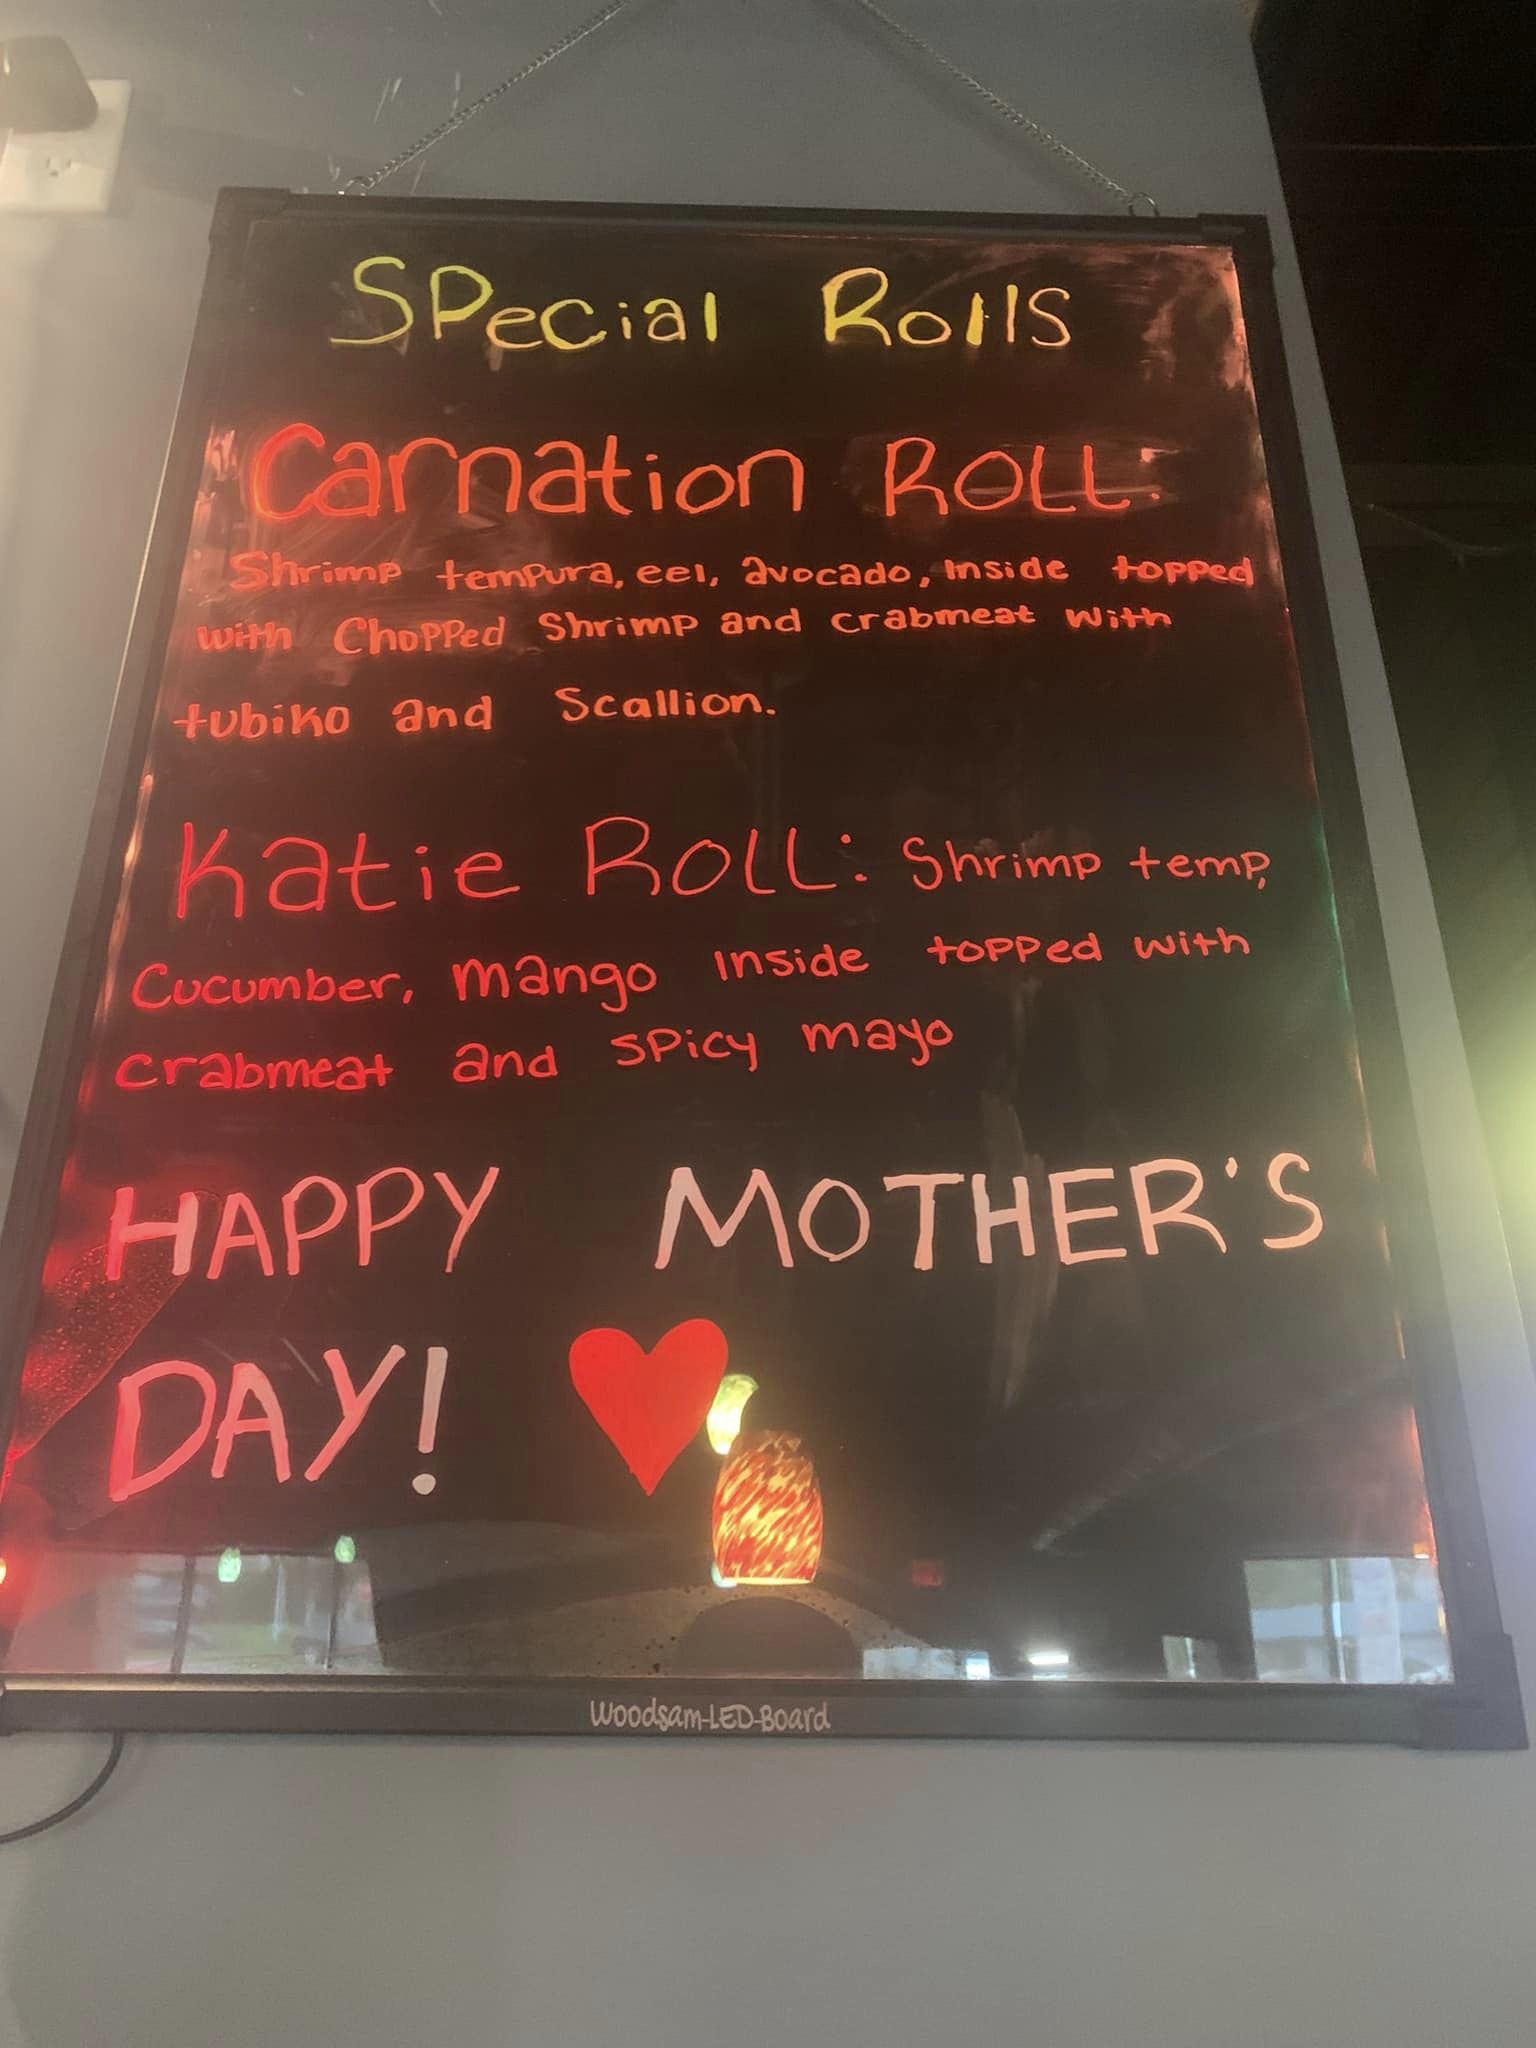 SPecial Rolls
Carnation ROLL.
Shrimp tempura, eel, avocado, Inside topped
with Chopped Shrimp and crabmeat with
tubiko and Scallion.
Katie ROLL: Shrimp temp,
Cucumber, mango Inside topped with
crabmeat and spicy mayo
HAPPY MOTHER'S
DAY!
Woodsam-LED-Board